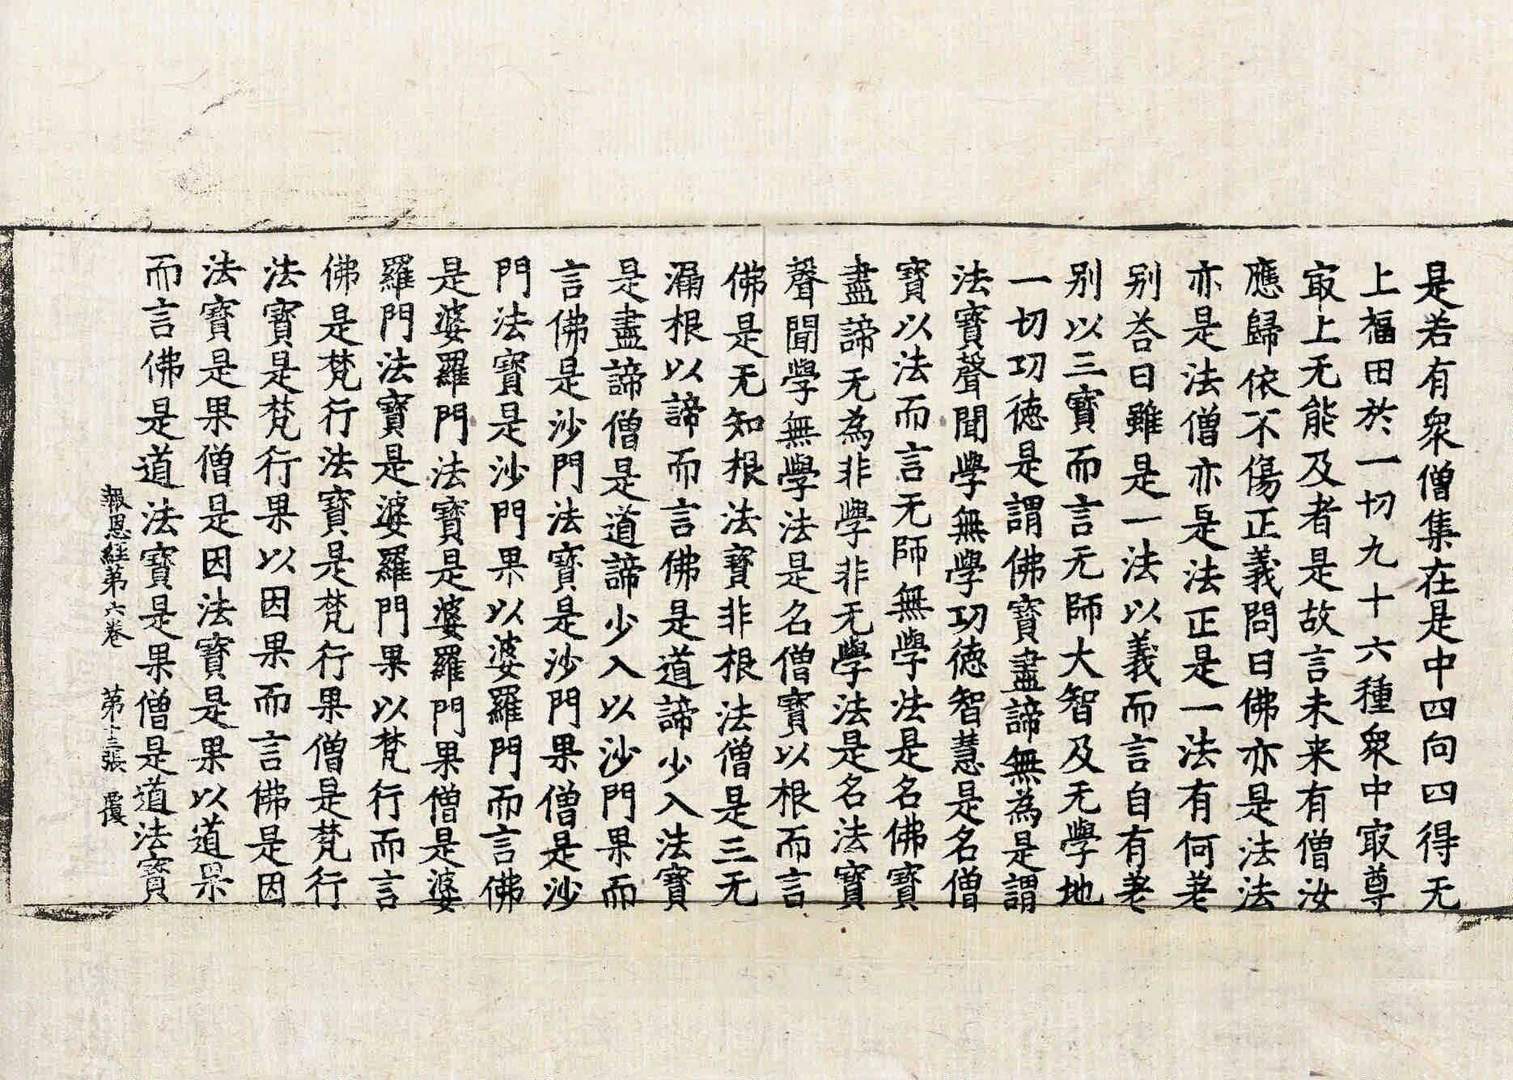 是若有衆僧集在是中四向四得无
上福田於一切九十六種衆中㝡尊
㝡上无能及者是故言未来有僧汝
應歸依不傷正義問曰佛亦是法法
亦是法僧亦是法正是一法有何差
别荅曰雖是一法以義而言自有差
别以三寶而言无師大智及无學地
一切功德是謂佛寶盡諦無為是謂
法寶聲聞學無學功德智慧是名僧
寶以法而言无師無學法是名佛寶
盡諦无為非學非无學法是名法寶
聲聞學無學法是名僧寶以根而言
佛是无知根法寶非根法僧是三无
漏根以諦而言佛是道諦少入法寶
是盡諦僧是道諦少入以沙門果而
言佛是沙門法寶是沙門果僧是沙
門法寶是沙門果以婆羅門而言佛
是婆羅門法寶是婆羅門果僧是婆
羅門法寶是婆羅門果以梵行而言
佛是梵行法寶是梵行果僧是梵行
法寶是梵行果以因果而言佛是因
法寶是果僧是因法寶是果以道果
而言佛是道法寶是果僧是道法寶
報恩経第六卷 第十三張 覆